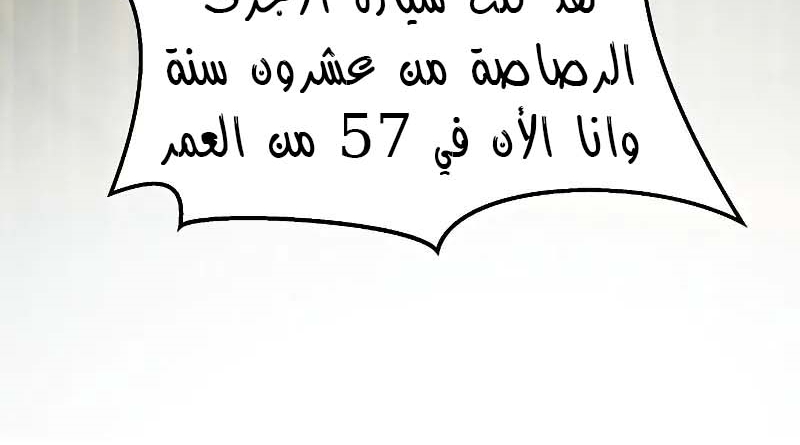 الرصاصة من عشرون سنة
وانا الأن في 57 من العمر